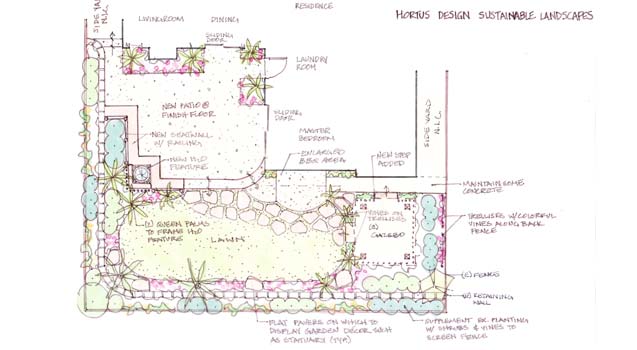 RESIDENCE
HORTUS DESIGN SUSTAINABLE LANDSCAPES
SIDE YARD
N.I.C.
LIVINGROOM
DINING
SLIDING
DOOR
LAUNDRY
ROOM
NEW PATIO @
FINISH FLOOR
SLIDING
DOOR
NEW SEATWALL
W/ RAILING
MASTER
BEDROOM
SIDE YARD
N.I.C.
NEW H2O
FEATURE
ENLARGED
BBQ AREA
NEW STEP
ADDED
MAINTAIN SOME
CONCRETE
(2) QUEEN PALMS
TO FRAME H2O
FEATURE
LAWN
VINES ON
TRELLISES
(E)
GAZEBO
TRELLISES W/ COLORFUL
VINES ALONG BACK
FENCE
(E) FENCE
(E) RETAINING
WALL
FLAT PAVERS ON WHICH TO
DISPLAY GARDEN DECOR SUCH
AS STATUARY (TYP.)
SUPPLEMENT EX. PLANTING
W/ SHRUBS & VINES TO
SCREEN FENCE